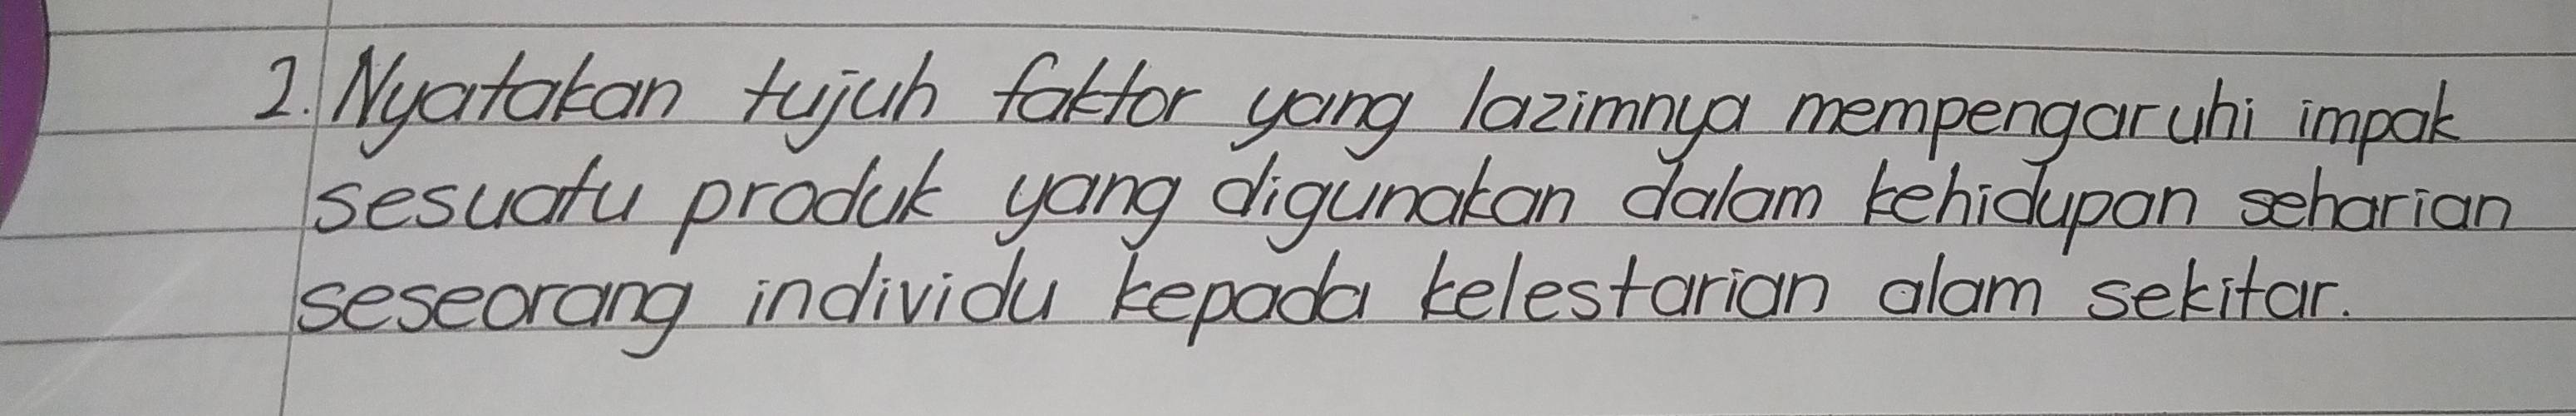 2. Nyatakan tujuh faktor yang lazimnya mempengaruhi impak
sesuatu produk yang digunakan dalam kehidupan seharian
seseorang individu kepada kelestarian alam sekitar.